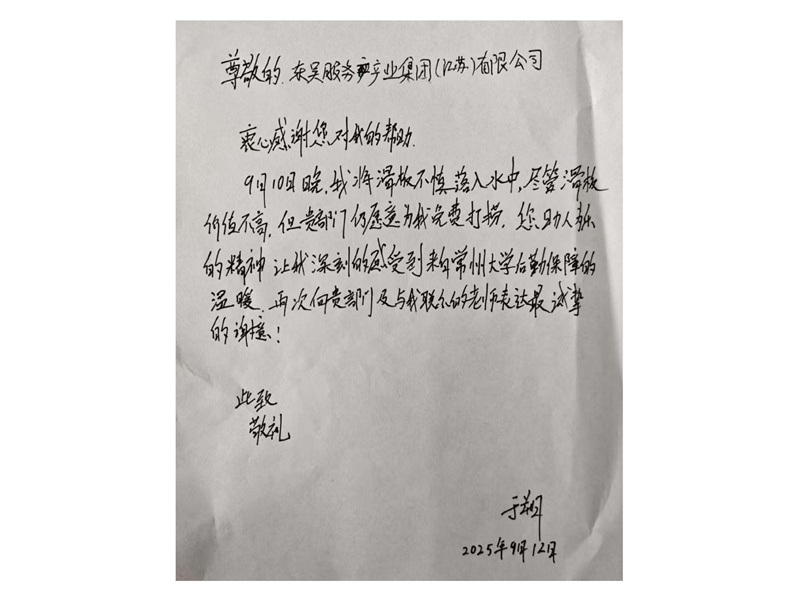 尊敬的 东吴服务产业集团(江苏)有限公司
衷心感谢您对我的帮助.
9月10日晚,我将滑板不慎落入水中,尽管滑板
价值不高,但贵部门仍愿意为我免费打捞. 您助人为乐
的精神 让我深刻的感受到来自常州大学后勤保障的
温暖. 再次向贵部门及与我联系的老师表达最诚挚
的谢意!
此致
敬礼
于
2025年9月12日